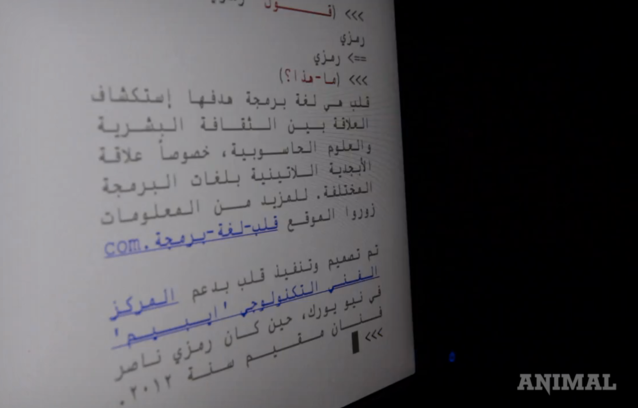 >>> (قــــول رمزي
رمزي
=> رمزي
>>> (ما-هذا؟)
قلب هي لغة برمجة هدفها إستكشاف
العلاقة بين الثقافة البشرية
والعلوم الحاسوبية، خصوصاً علاقة
الأبجدية اللاتينية بلغات البرمجة
المختلفة. للمزيد من المعلومات
زوروا الموقع قلب-لغة-برمجة.com
تم تصميم وتنفيذ قلب بدعم المركز
الفني التكنولوجي 'ايبيم'
في نيو يورك، حين كان رمزي ناصر
فنان مقيم سنة ٢٠١٢.
>>>
ANIMAL